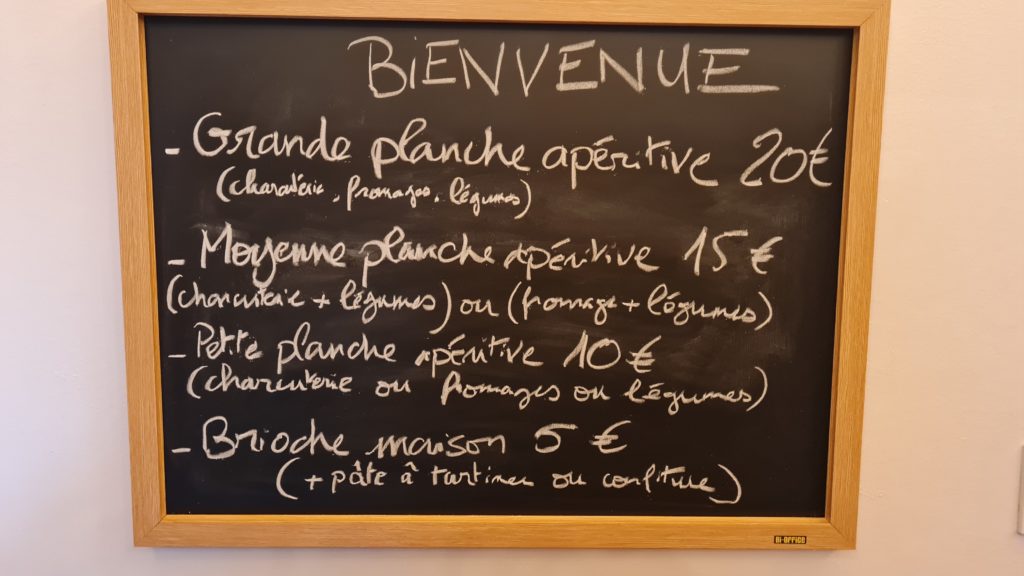 BiENVENUE
- Grande planche apéritive 20€
(charcuterie, fromages, légumes)
- Moyenne planche apéritive 15 €
(charcuterie + légumes) ou (fromage + légumes)
- Petite planche apéritive 10 €
(charcuterie ou fromages ou légumes)
- Brioche maison 5 €
(+ pâte à tartiner ou confiture)
BI-OFFICE